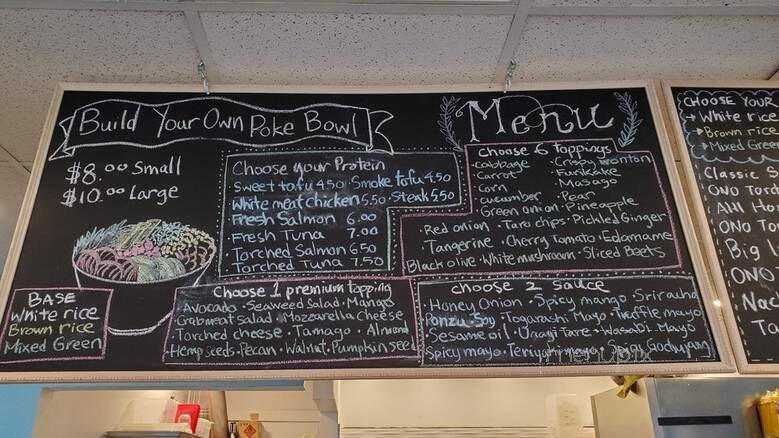 Build Your Own Poke Bowl
Menu
$8.00 Small
$10.00 Large
Choose your Protein
Sweet tofu 4.50 Smoke tofu 4.50
White meat chicken 5.50 · Steak 5.50
Fresh Salmon 6.00
Fresh Tuna 7.00
Torched Salmon 6.50
Torched Tuna 7.50
choose 6 toppings
cabbage · Crispy wonton
carrot · Furikake
corn · Masago
cucumber · Pear
Green onion · Pineapple
Red onion · Taro chips · Pickled Ginger
Tangerine · Cherry Tomato · Edamame
Black olive · White mushroom · Sliced Beets
BASE
White rice
Brown rice
Mixed Green
choose 1 premium topping
Avocado · Seaweed Salad · Mango
Crabmeat Salad · Mozzarella Cheese
Torched cheese · Tamago · Almond
Hemp seeds · Pecan · Walnut · Pumpkin see
choose 2 sauce
Honey Onion · Spicy mango · Sriracha
Ponzu · Soy · Togarashi Mayo · Truffle mayo
Sesame oil · Unagi Tare · Wasabi Mayo
Spicy mayo · Teriyaki mayo · Spicy Gochujan
CHOOSE YOUR
White rice
Brown rice
Mixed Green
Classic S
ONO Tor
Ahi Hon
ONO To
Big W
ONO
Nac
Tor